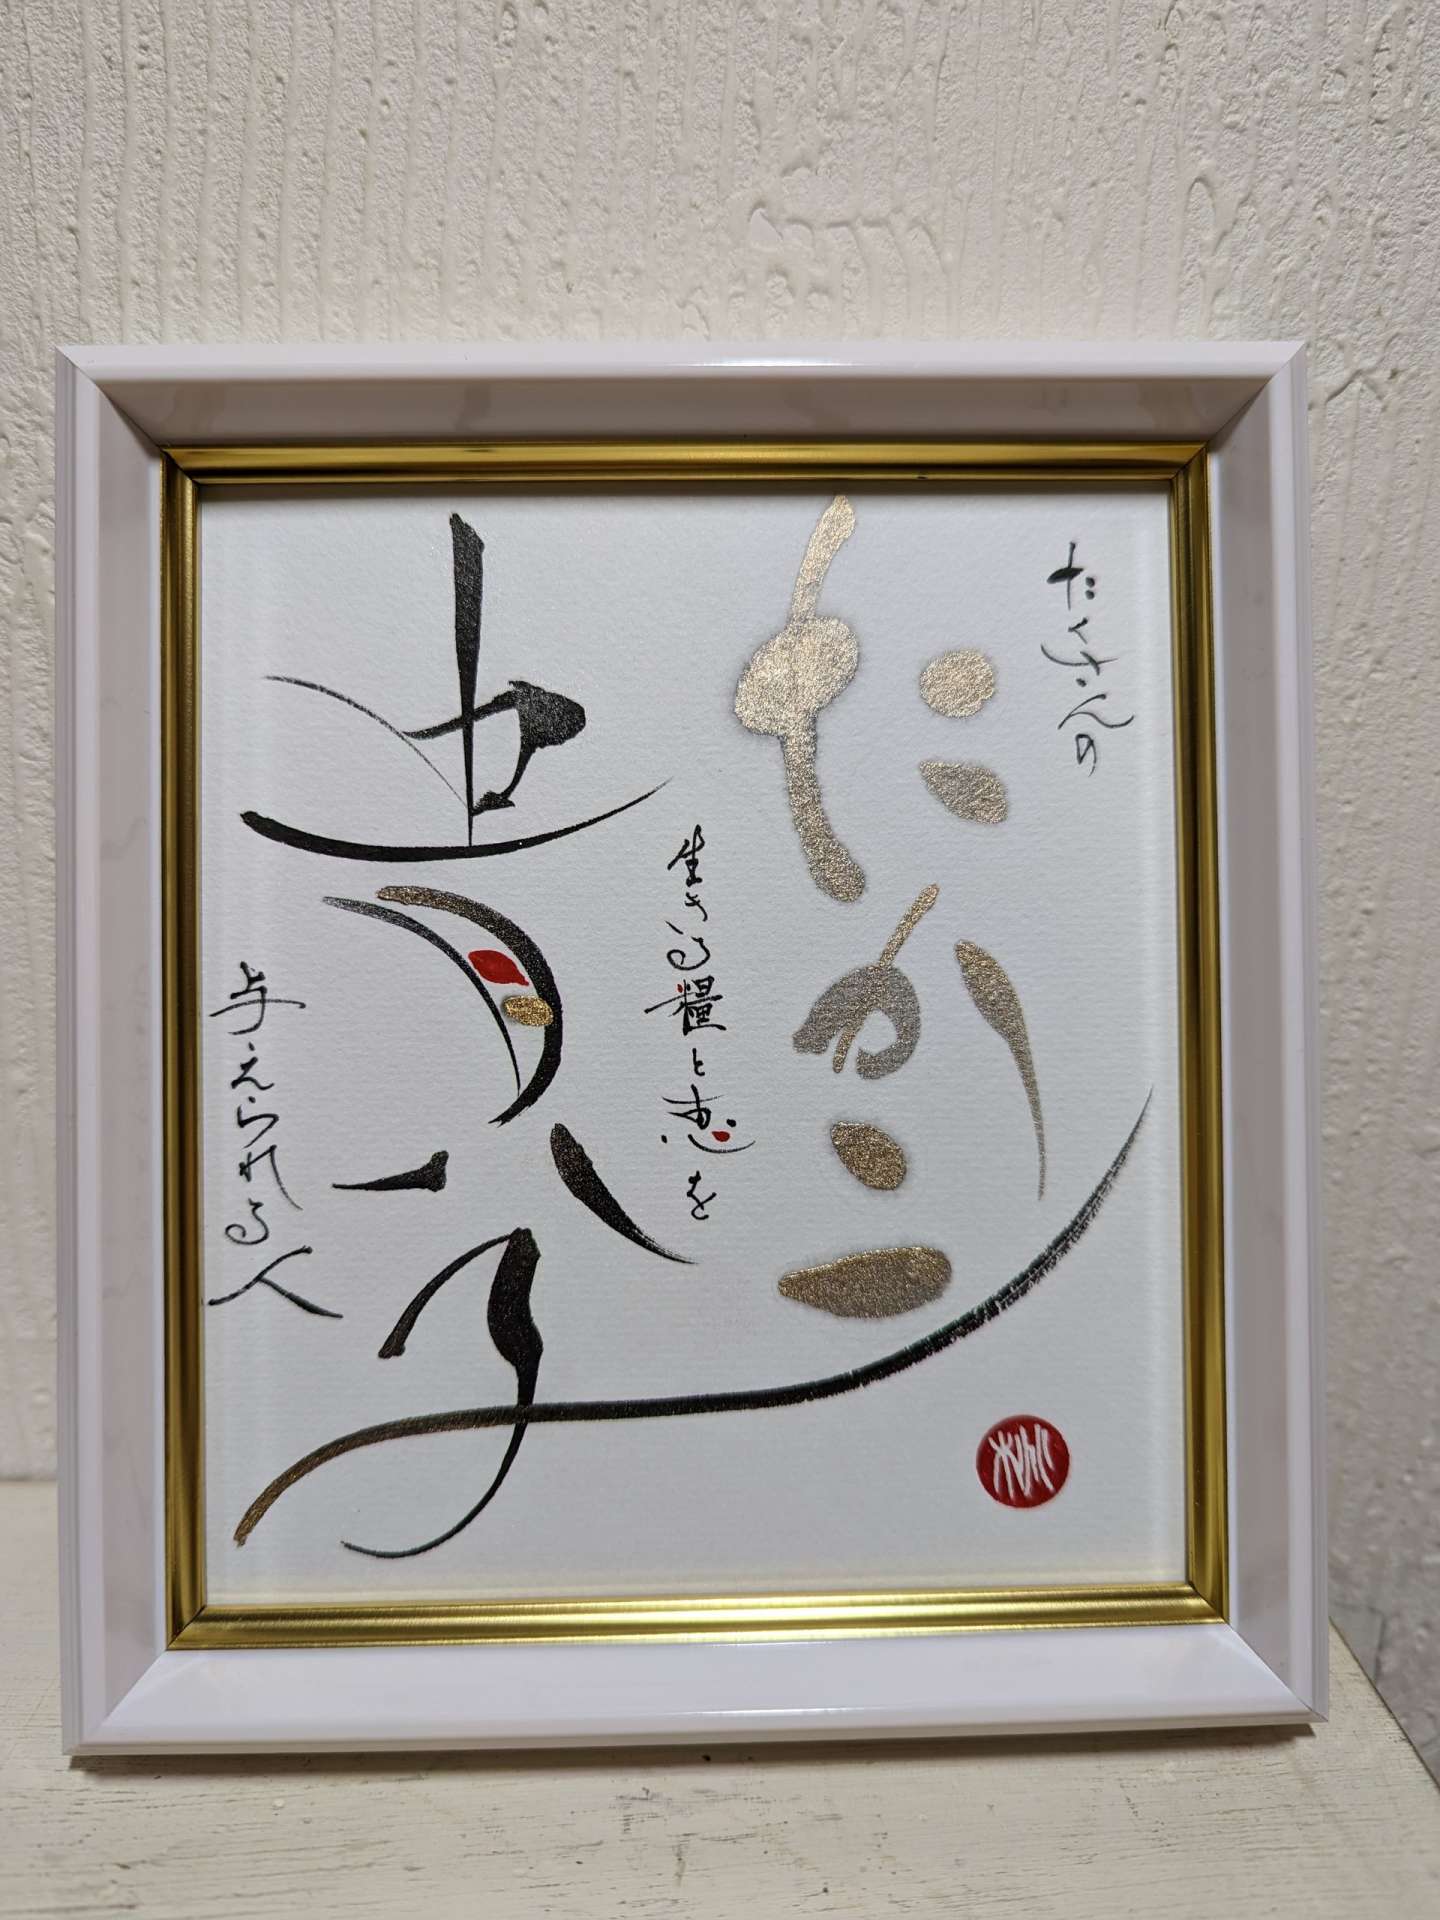 たくさんの
たかこ
生きる糧と恵を
貴子
与えられる人